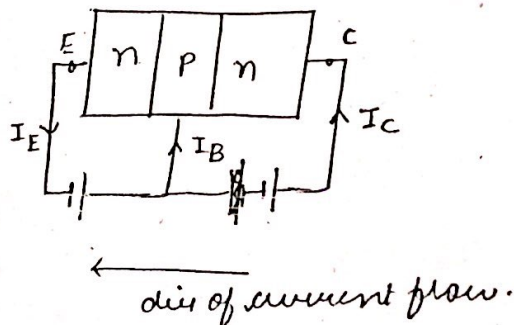 E
n
P
n
C
I_E
I_B
I_C
dirⁿ of current flow.